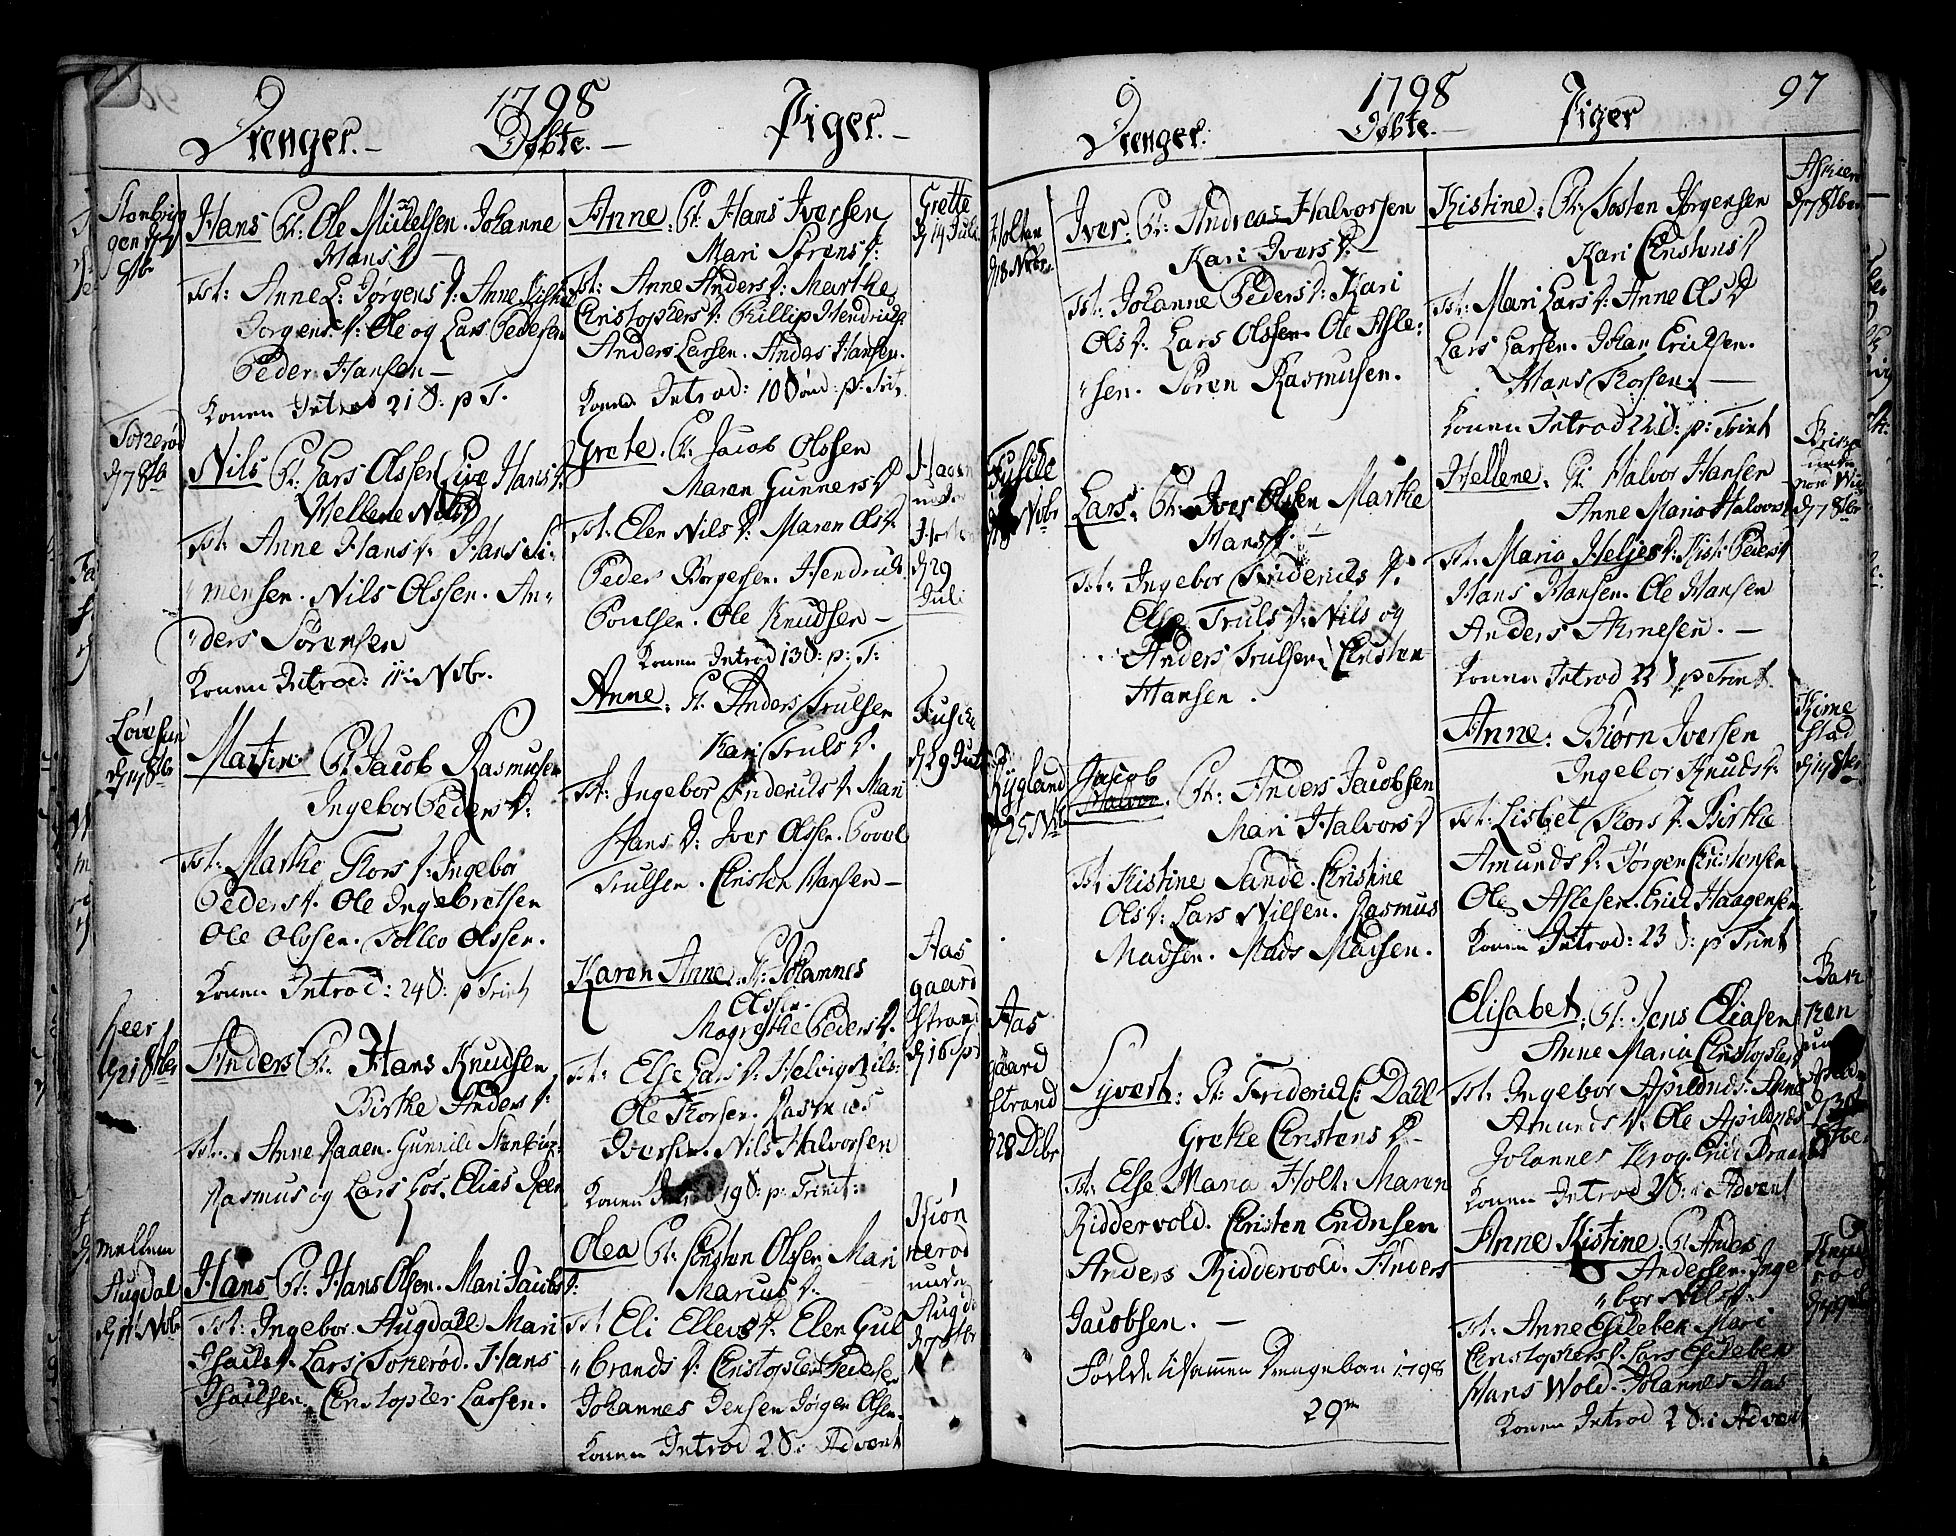 1798
Drenger. Døbte. Piger.
Stenbrig
gen d 7
8br
Hans Pt: Ole Mickelsen. Johanne
Hans D
Tst: Anne L: Jørgens D: Anne Lisbe
Jørgens D: Ole og Lars Pedersen
Peder Hansen
Konen Introd 21 S: p T.
Tokerød
d 7 8br
Nils Pt: Lars Olssen Live Hans D:
Hellene Nils D
Tst: Anne Hans D: Hans Si-
mensen. Nils Olssen. An-
ders Sørensen
Konen Introd: 11 Nvbr.
Løvesen
d 14 8br
Martin Pt: Jacob Rasmusen
Ingebor Peders D:
Tst: Marthe Thors D: Ingebor
Peders D. Ole Ingebretsen
Ole Olssen. Tollev Olssen.
Konen Introd: 24 S: p Trint
Reer
d 21 8tbr
Anders Pt. Hans Knudsen
Birthe Anders D:
Tst: Anne Raaen. Gunnild Stenbrig
Rasmus og Lars Løs. Elias Reer
mellem
Augdal
d 11 Nvbr
Hans Pt: Hans Olsen. Mari Jacobs D:
Tst: Ingebor Augdall Mari
Isacks D: Lars Tokerød. Hans
Isacksen. Christopher Larsen.
Anne: Pt: Hans Iversen
Mari Sørens D:
Tst: Anne Anders D: Marthe
Christophers D: Phillip Hendrichs
Anders Larsen. Anders Hansen.
Konen Introd: 10 Sønd: p: Trin
Grette
d 14 Juli
Grete. Pt: Jacob Olssen
Maren Gunners D
Tst: Elen Nils D: Maren Ols D
Peder Borgersen. Hendrick
Poulsen. Ole Knudsen
Konen Introd 13 S: p: T:
Hagen
unde
d 29
Juli
Anne: Pt. Anders Trulsen
Kari Truls D.
Tst: Ingebor Friderichs D. Mari
Hans D: Iver Olssen. Povel
Trulsen. Christen Hansen
Fuske
d 29 Juli
Karen Anne. Pt: Johannes
Olssen
Magrethe Peders D.
Tst: Else Lars D: Helvig Nils:
Ole Thorsen. Rasmus
Iversen. Nils Halvorsen
Konen Introd 19 S: p: Trint:
Aas
gaard
strand
d 16 Sp
Olea Pt: Christen Olssen. Mari
Marius D:
Tst Eli Ellers D. Elen Gul
brands D: Christopher Pedersen
Johannes Jensen Jørgen Olsen.
Konen Introd 2 S: i Advent
Kiøn
nerød
unde
Augda
d 7 8tbr
1798 97
Drenger: Døbte. Piger
Holtan
d 18 Nvbr
Iver: Pt: Andreas Halvorsen
Kari Ivers D
Tst: Johanne Peders D: Kari
Ols D. Lars Olssen. Ole Asle:
sen. Søren Rasmusen.
Fuske
d 18 Nvbr
Lars: Pt: Iver Olsen Marthe
Hans D.
Tst: Ingebor Friderichs D.
Else Truls D: Nils og
Anders Trulsen Christen
Hansen.
Rygland
d 25 Nvb
Jacob
Halvor. Pt: Anders Jacobsen
Mari Halvors D
Tst Kistine Sande. Christine
Ols D: Lars Nilsen. Rasmus
Madsen. Mads Madsen.
Aas
gaard
strand
d 28 Dcbr
Syvert: Pt: Friderick C: Dall
Grethe Christens D
Tst: Else Maria Holt. Maren
Riddervold. Christen Endresen
Anders Riddervold. Anders
Jacobsen.
Fødde tilsammen Drengebørn 1798
29
Kistine: Pt: Tosten Jørgensen
Kari Christens D
Tst: Mari Lars D: Anne Ols D
Lars Larsen. Johan Ericksen.
Hans Thorsen.
Konen Introd 22 S: p: Trint
d 7 8tber
Hellene: Pt: Halvor Hansen
Anne Maria Halvors D
Tst: Maria Heljes D: Kist: Peders D
Hans Hansen. Ole Hansen
Anders Arnesen.
Konen Introd 22 S p Trint.
unde
d 7 8tbr
Anne: Biørn Iversen
Ingebor Knuds D:
Tst: Lisbet Thors D: Birthe
Amunds D: Jørgen Christensen
Ole Aslesen. Erick Haagensen
Konen Introd: 23 S: p Trint
Kime
stad
d 14 8tbr
Elisabet: Pt: Jens Eliasen
Anne Maria Christophers
Tst: Ingebor Apildnes: Anne
Amunds D: Ole Apildnes
Johannes Krog. Erick Braar
Konen Introd 2 S: i Advent
Bak
ken
Anne Kistine Pt Anders
Andersen. Inge
bor Nils D.
Tst: Anne Eskeber Mari
Christophers D: Lars Eskeber
Hans Wold. Johannes Aas
Konen Introd 2 S: i Advent
Knud
rød